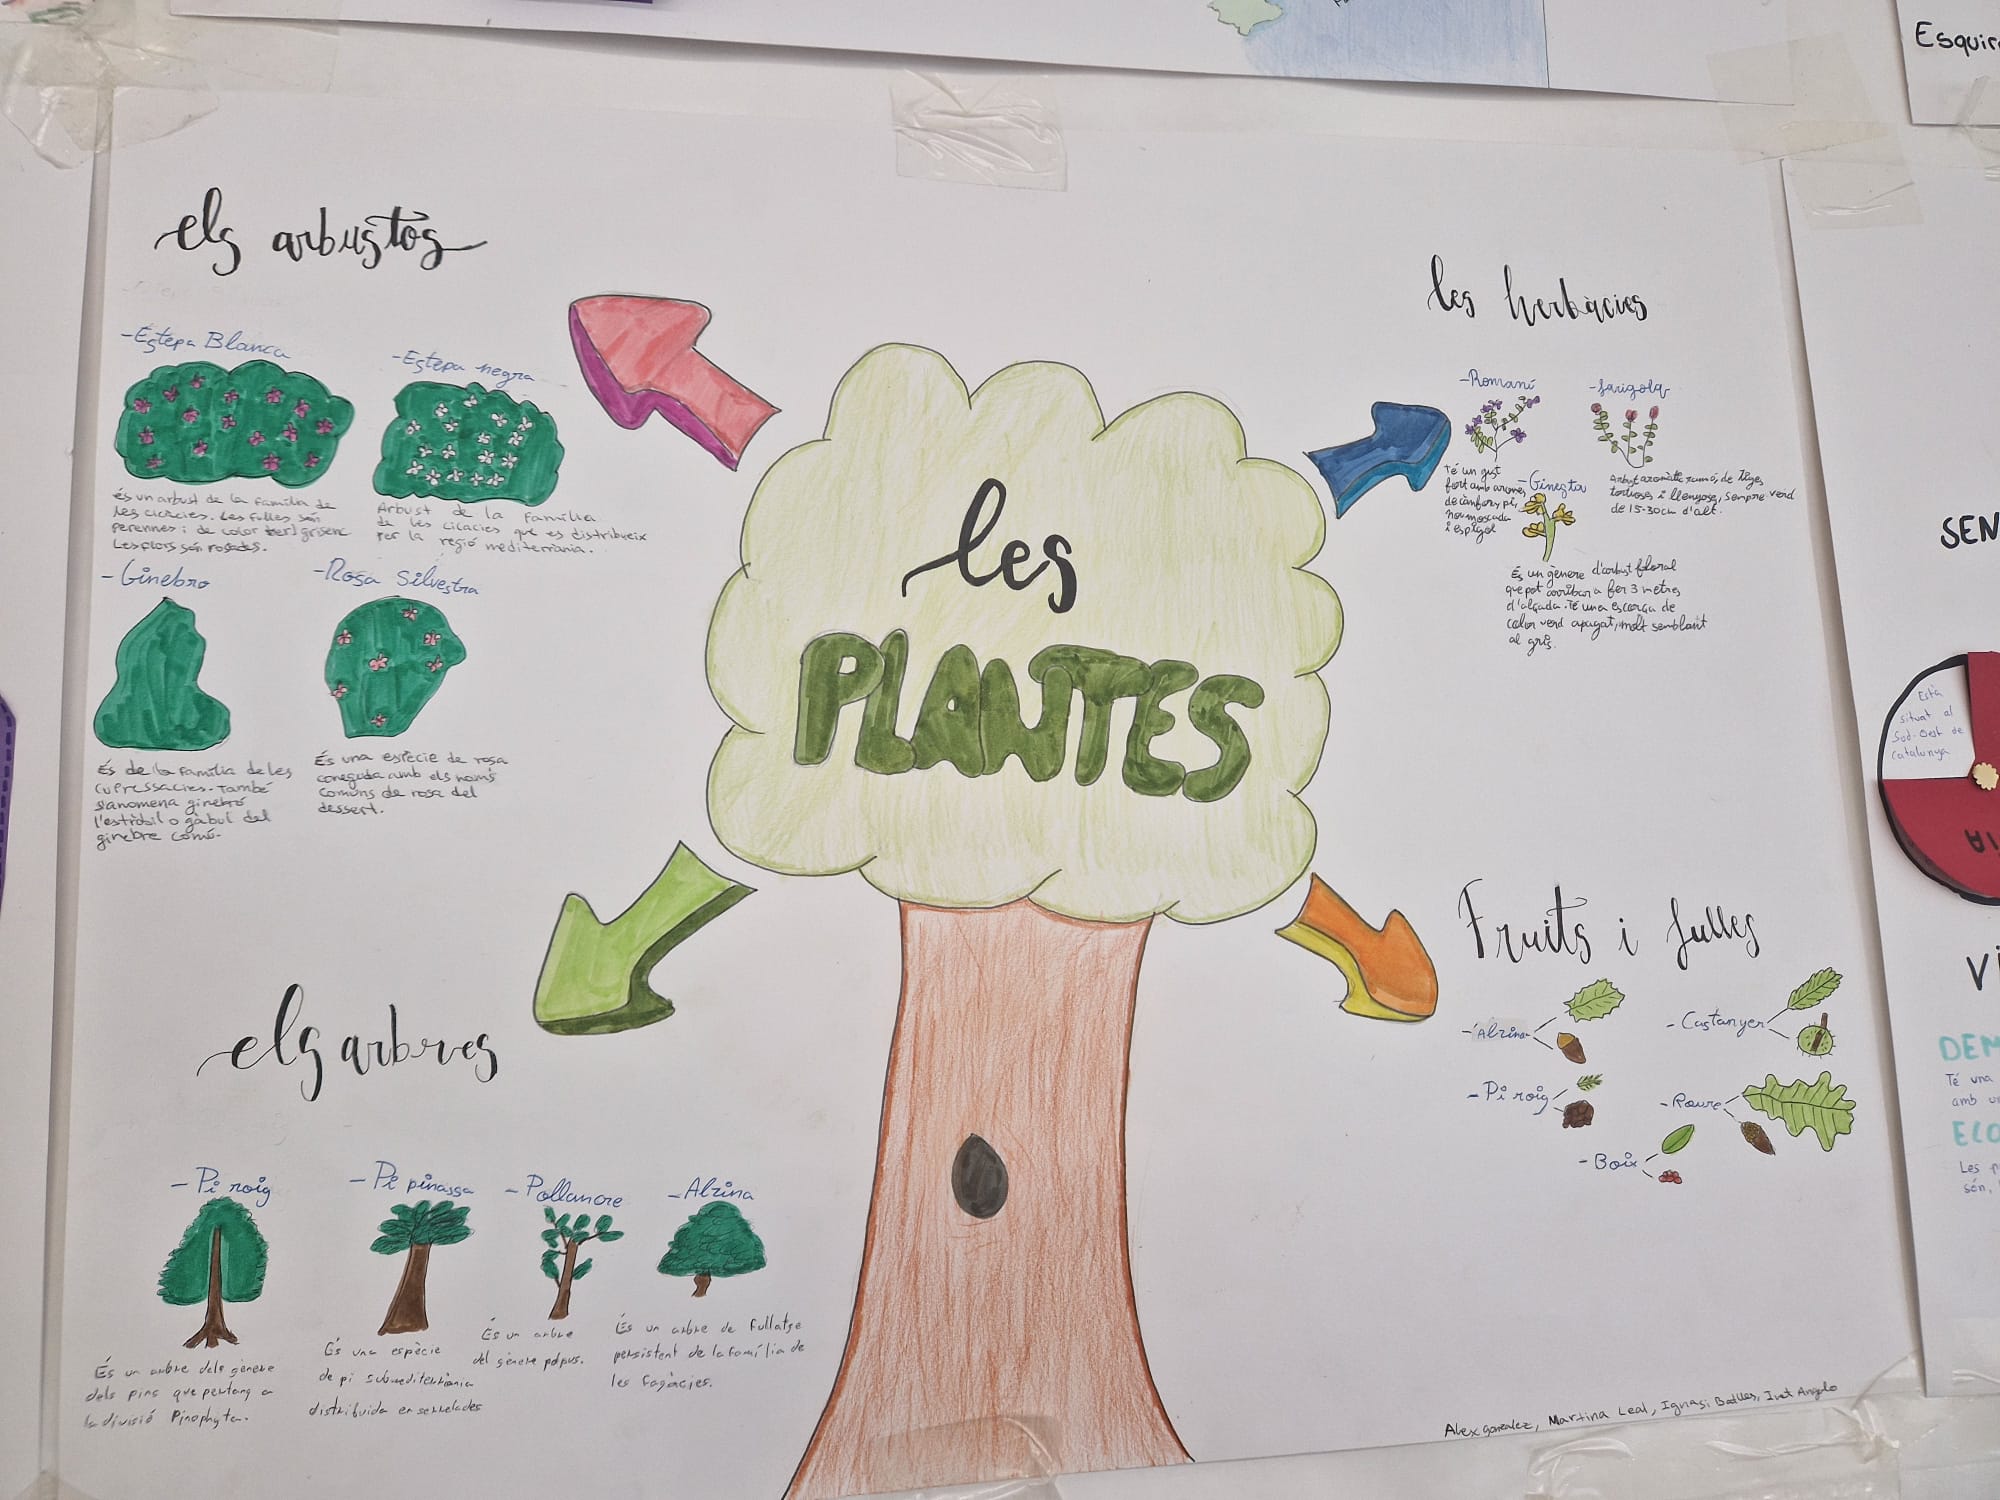 els arbustos
-Estepa Blanca
És un arbust de la família de
les cicàcies. Les fulles són
perennes i de color verd grisenc
Les flors són rosades.
-Estepa negra
Arbust de la família
de les cicacies que es distribueix
per la regió mediterrània.
-Ginebró
És de la família de les
cupressàcies. També
s'anomena ginebró
l'estròbil o gàbul del
ginebre comú.
-Rosa Silvestra
És una espècie de rosa
coneguda amb els noms
comuns de rosa del
dessert.
les PLANTES
les herbàcies
-Romaní
Té un gust
fort amb aromes
de càmfora, pi,
nou moscada
i espígol
-farigola
Arbust aromàtic ramós, de tiges
tortuoses i llenyoses, sempre verd
de 15-30cm d'alt.
-Ginesta
És un gènere d'arbust floral
que pot arribar a fer 3 metres
d'alçada. Té una escorça de
color verd apagat, molt semblant
al gris.
els arbres
-Pi roig
És un arbre dels gènere
dels pins que pertany a
la divisió Pinophyta.
-Pi pinassa
És una espècie
de pi submediterrània
distribuida en serrelades
-Pollancre
És un arbre
del gènere pópus.
-Alzina
És un arbre de fullatge
persistent de la família de
les fagàcies.
Fruits i fulles
-Alzina
-Castanyer
-Pi roig
-Roure
-Boix
Alex gonzalez, Martina Leal, Ignasi Batlles, Ivet Angelo
Està
situat al
Sud-Oest de
Catalunya
Té una
Les p
són,